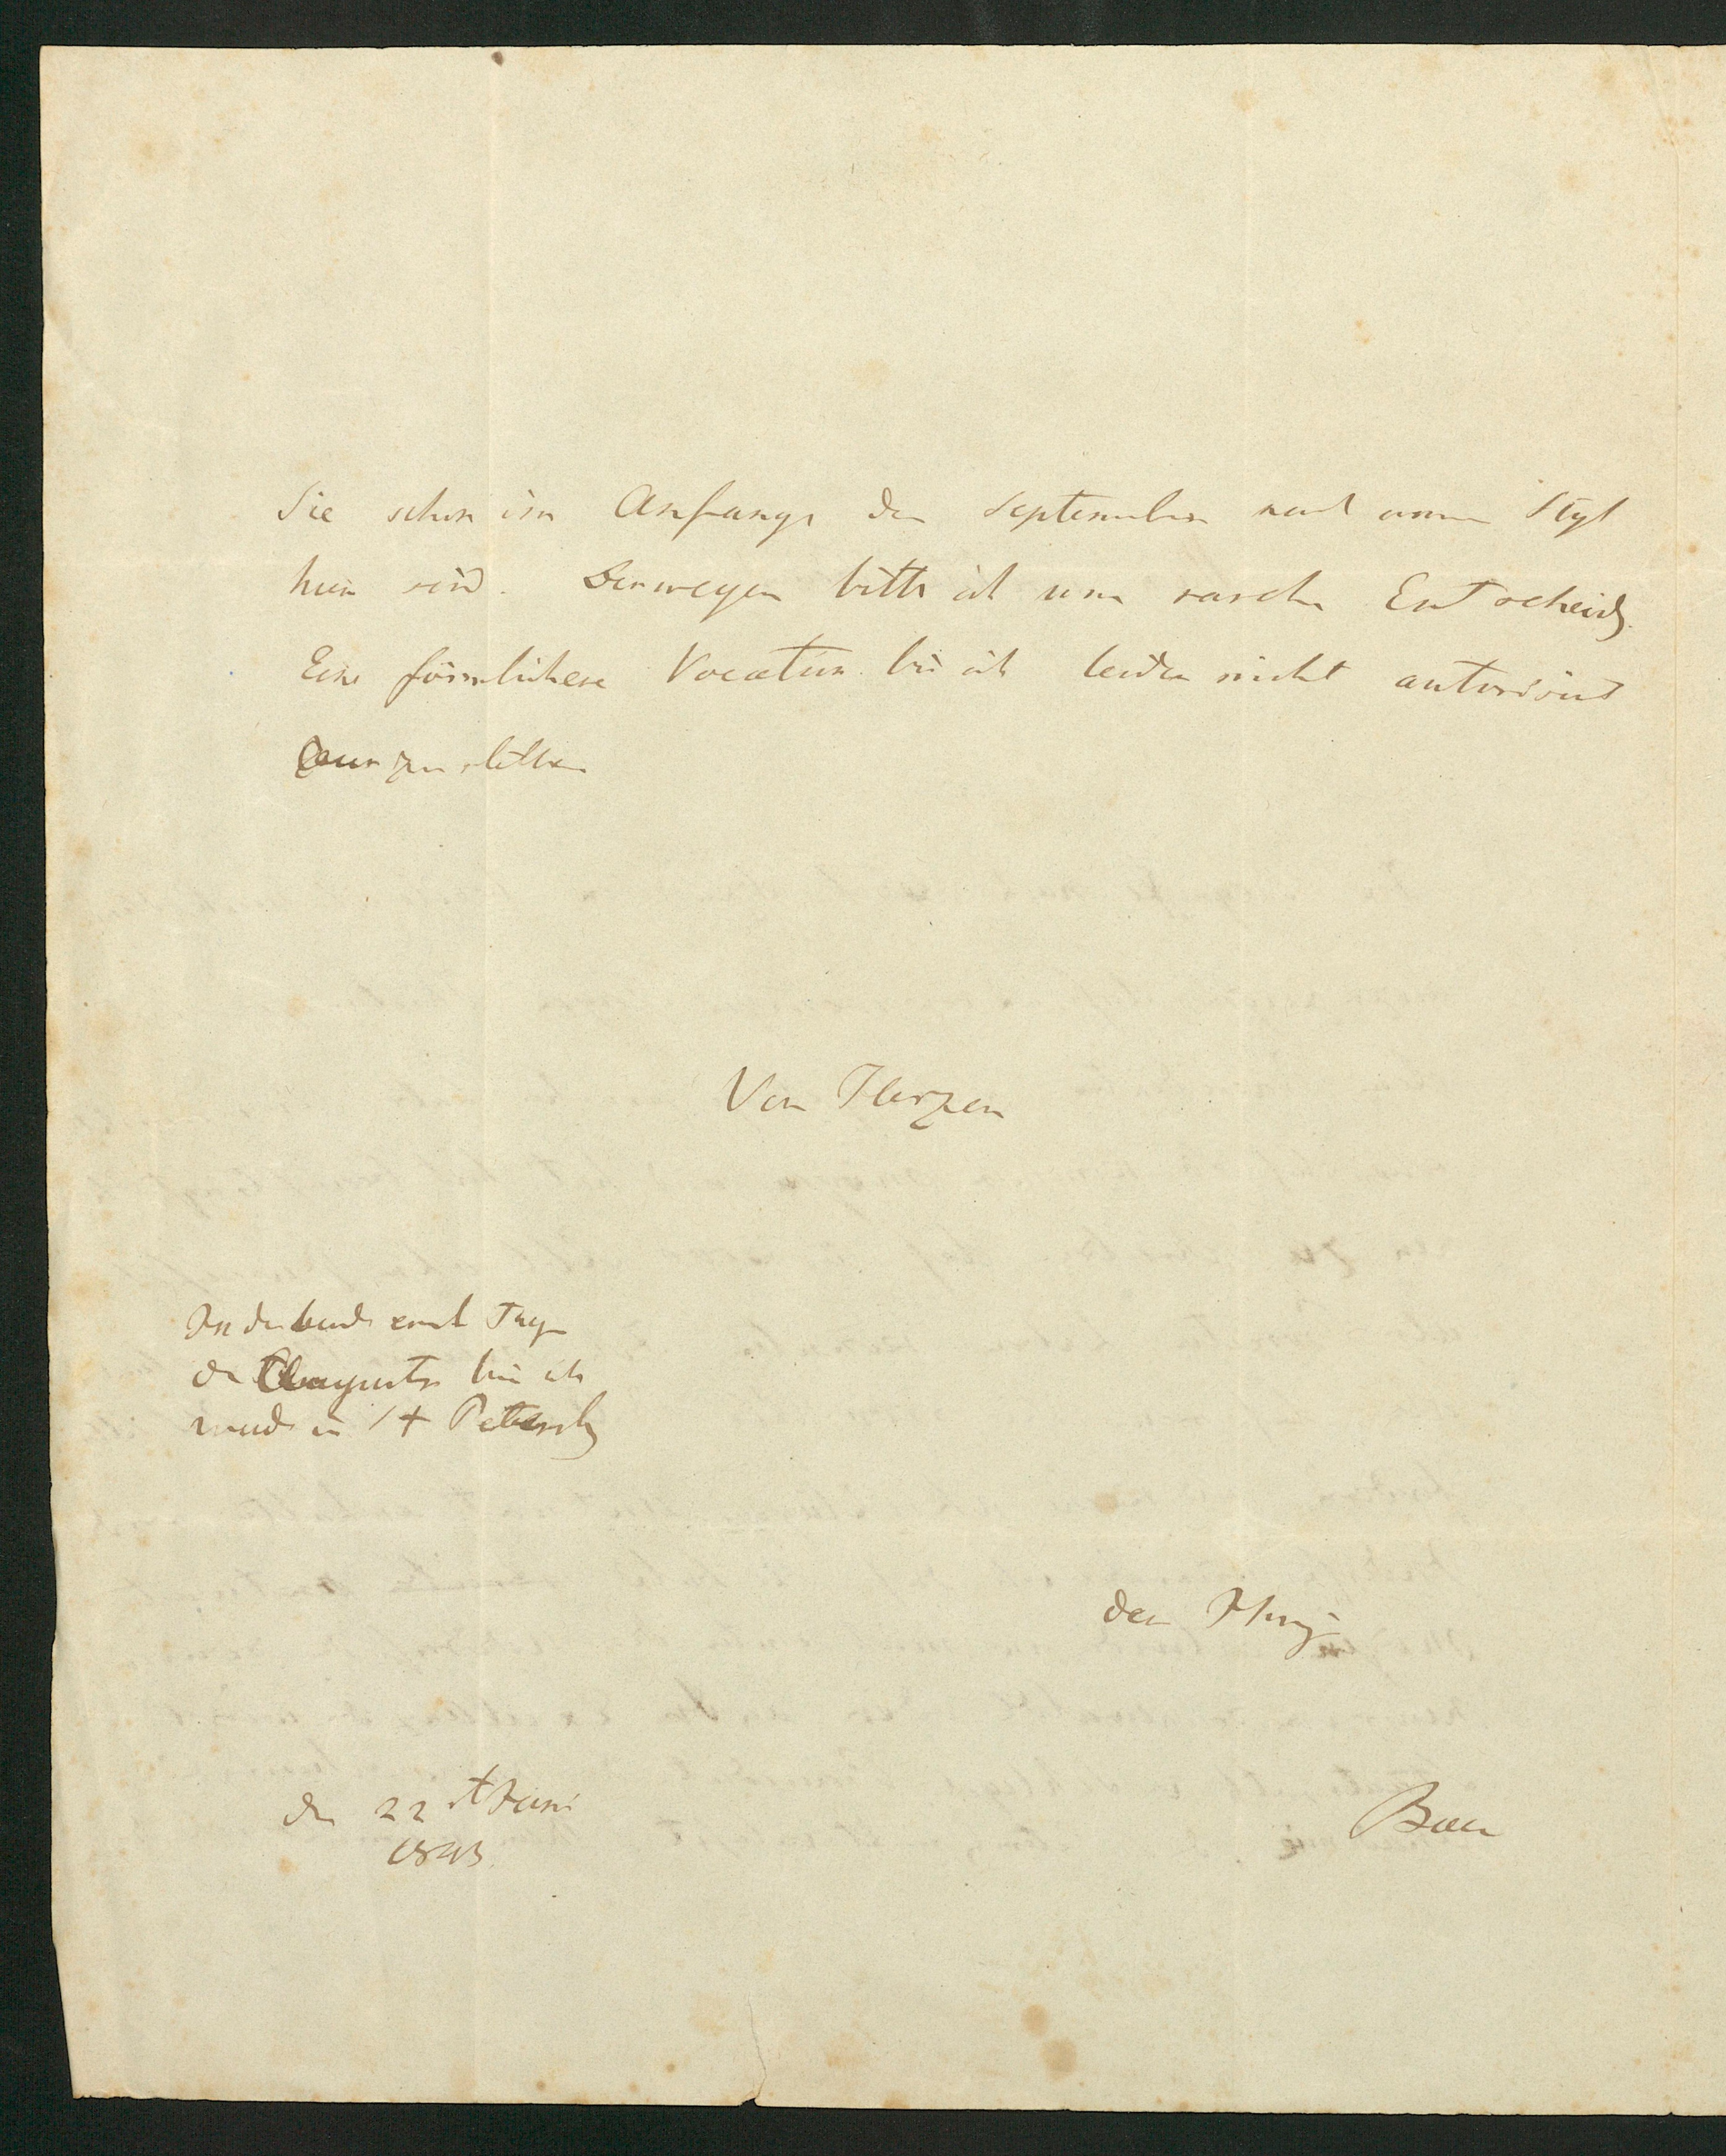 Sie schon im Anfange des Septembers nach unserm Styl
hier sind. Deswegen bitte ich um rasche Entscheidg.
Eine förmlichere Vocation bin ich leider nicht autorisirt
auszustellen
Von Herzen
In den beiden ersten Tagen
des Augusts bin ich
in St Petersbg
der Ihrige
den 22st Juni
1843.
Baer